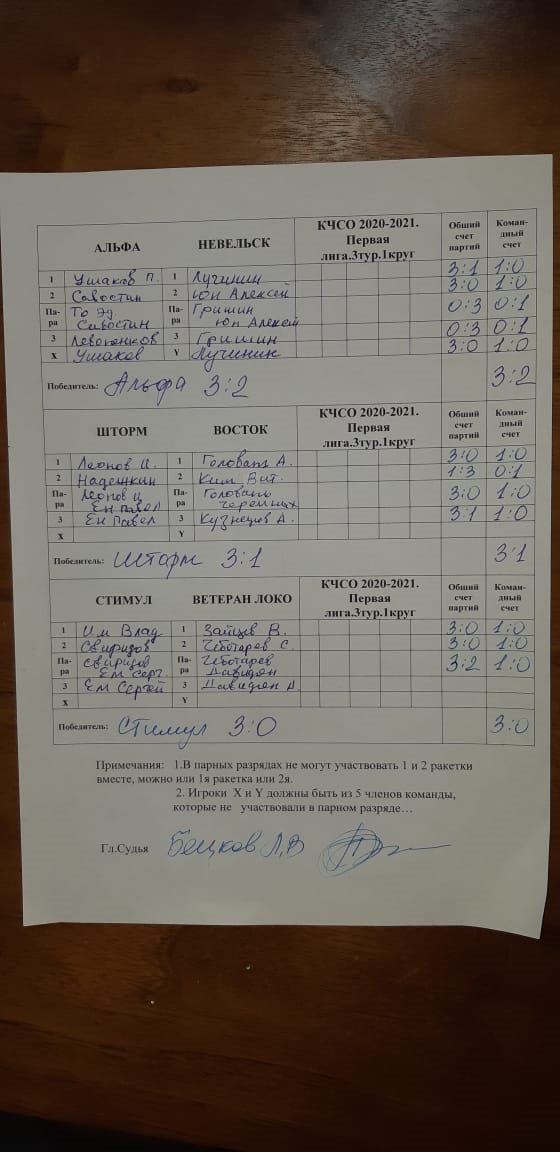 АЛЬФА НЕВЕЛЬСК КЧСО 2020-2021. Первая лига.3тур.1круг Общий счет партий Коман-дный счет
1 Ушаков П. 1 Лучинин 3:1 1:0
2 Савостин 2 Юн Алексей 3:0 1:0
Па-ра То Эд Савостин Па-ра Гришин Юн Алексей 0:3 0:1
3 3 Гришин 0:3 0:1
X Ушаков Y Лучинин 3:0 1:0
Победитель: Альфа 3:2 3:2
ШТОРМ ВОСТОК КЧСО 2020-2021. Первая лига.3тур.1круг Общий счет партий Коман-дный счет
1 Леонов И. 1 Головань А. 3:0 1:0
2 Надешкин 2 Ким Вит. 1:3 0:1
Па-ра Леонов И Ен Павел Па-ра Головань Черемных 3:0 1:0
3 Ен Павел 3 Кузнецов А. 3:1 1:0
X Y
Победитель: Шторм 3:1 3:1
СТИМУЛ ВЕТЕРАН ЛОКО КЧСО 2020-2021. Первая лига.3тур.1круг Общий счет партий Коман-дный счет
1 Им Влад 1 Зайцев В. 3:0 1:0
2 Свиридов 2 Чеботарев С. 3:0 1:0
Па-ра Свиридов Ем Серг. Па-ра Чеботарев Давидян 3:2 1:0
3 Ем Сергей 3 Давидян А.
X Y
Победитель: Стимул 3:0 3:0
Примечания: 1.В парных разрядах не могут участвовать 1 и 2 ракетки
вместе, можно или 1я ракетка или 2я.
2. Игроки X и Y должны быть из 5 членов команды,
которые не участвовали в парном разряде…
Гл.Судья Бецков Л.В